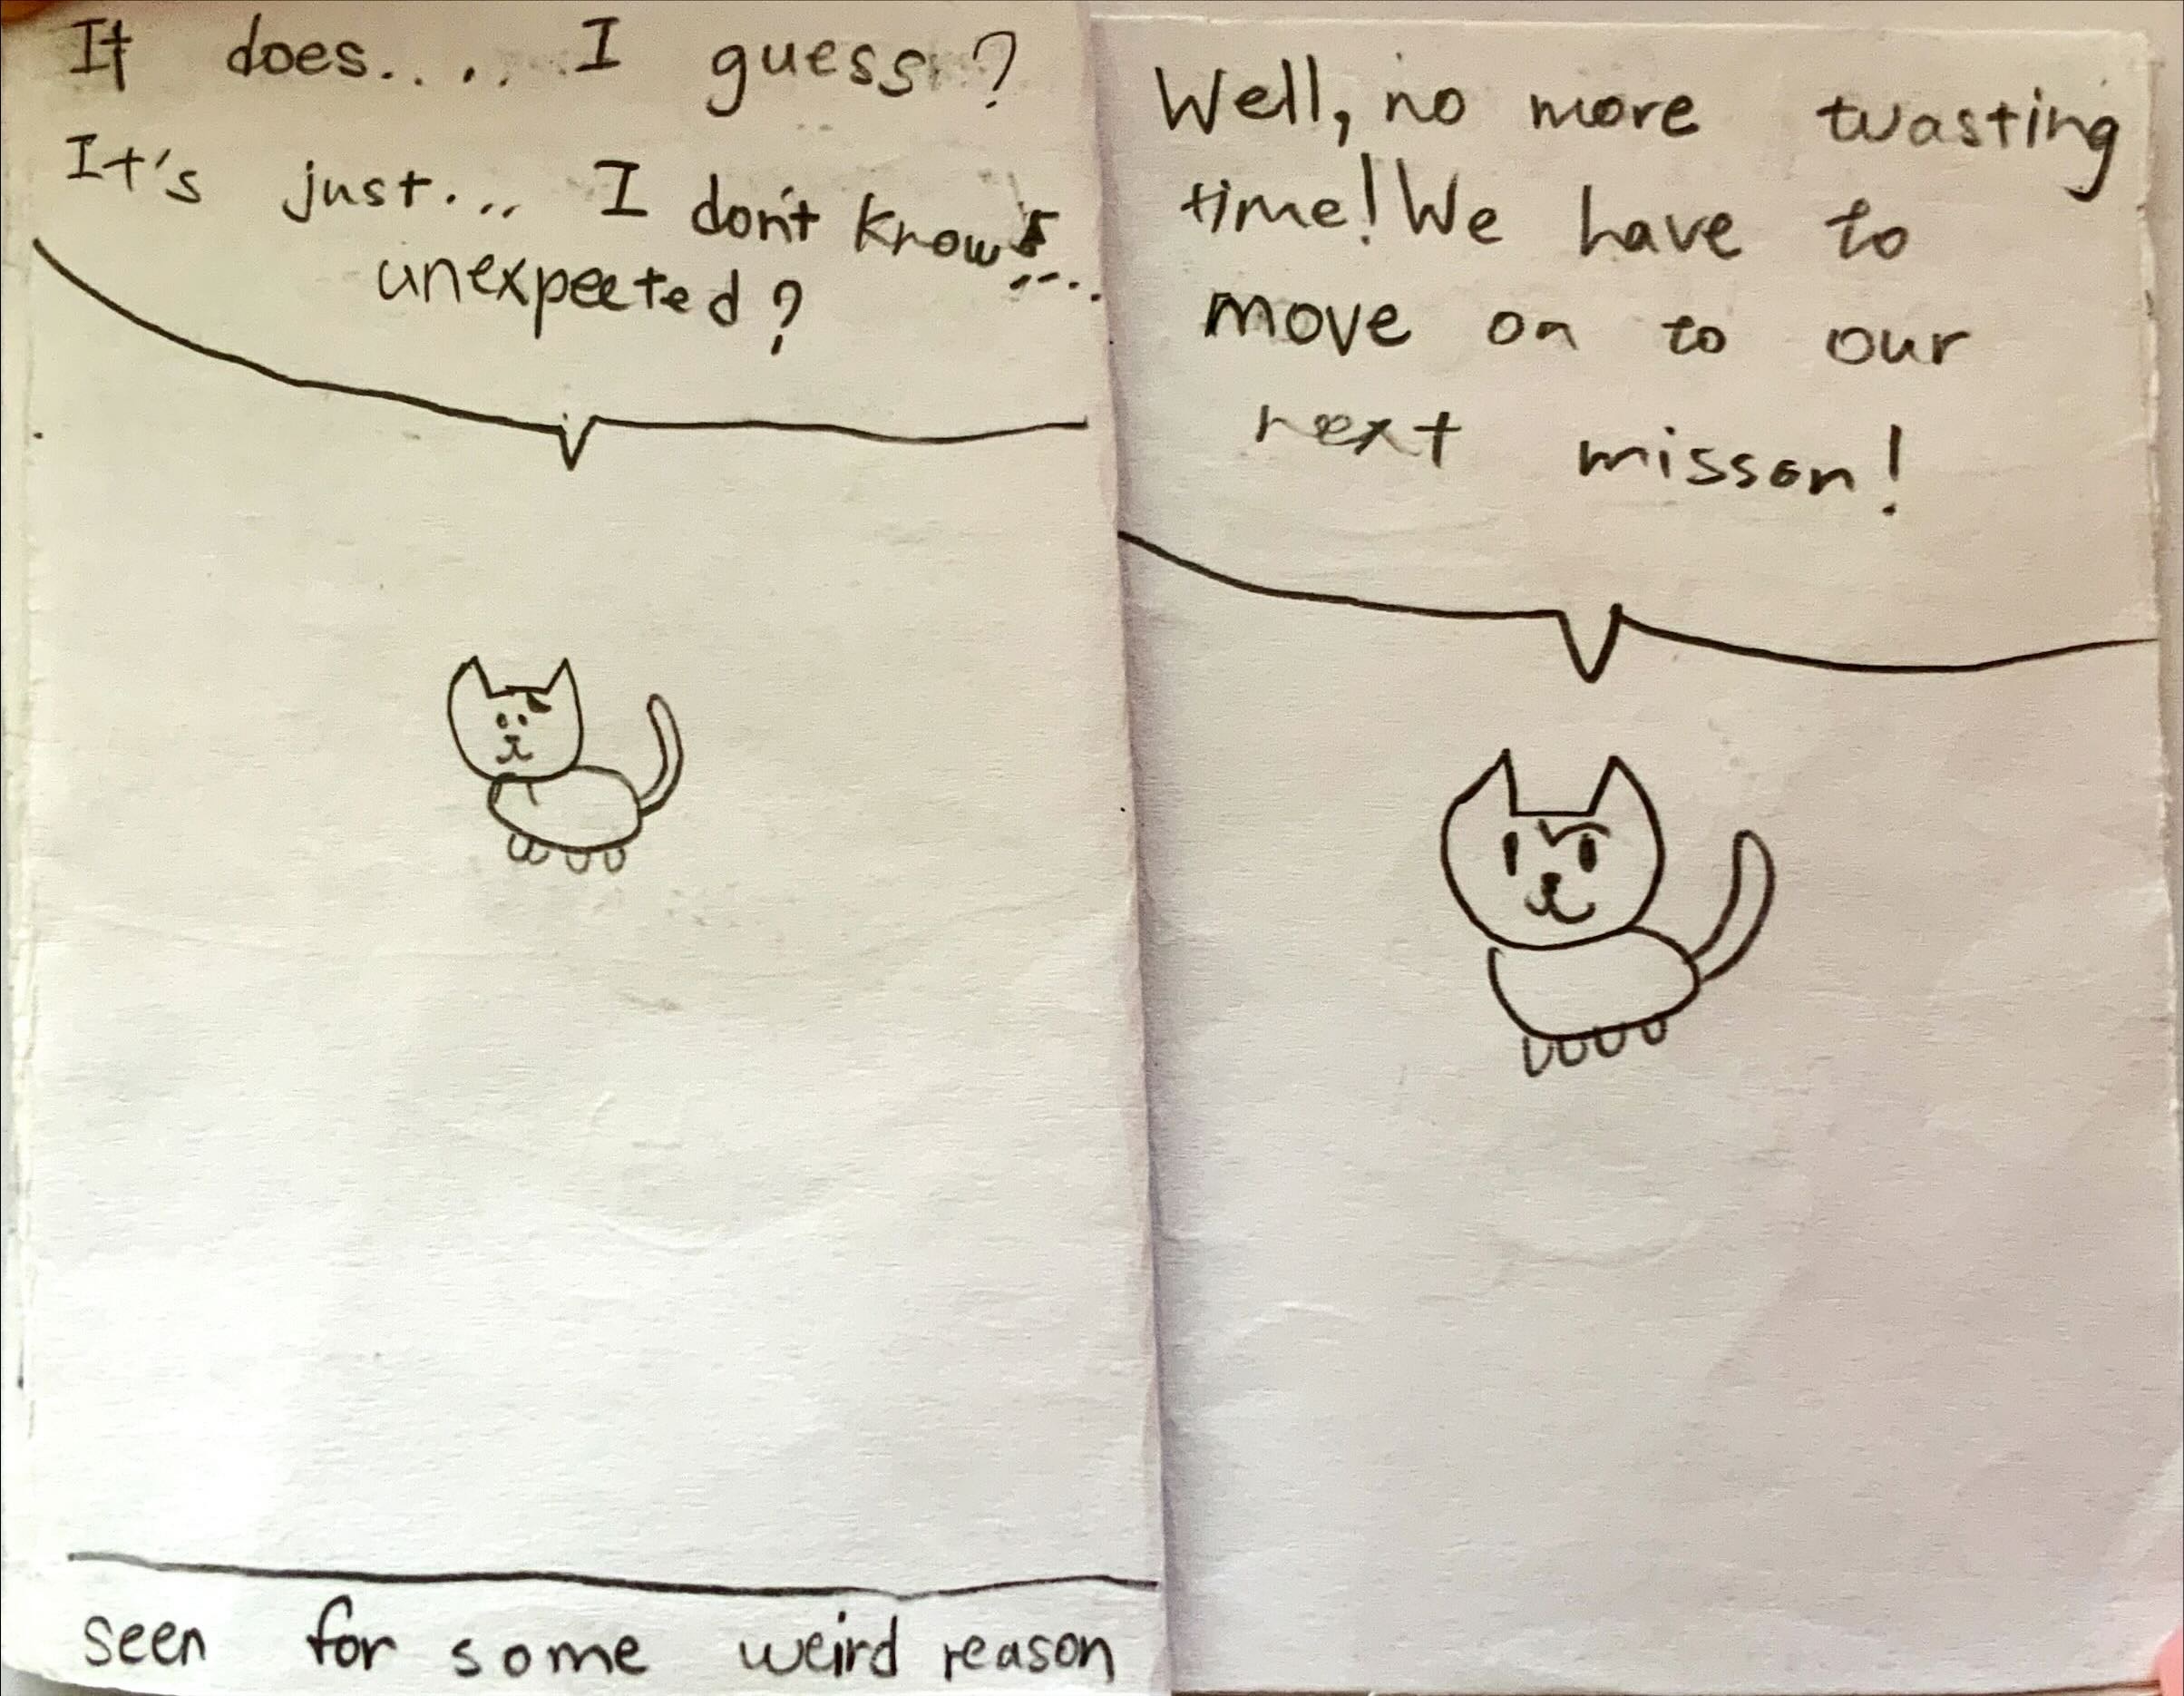 It does..... I guess?
It's just.... I don't know....
unexpected?
seen for some weird reason
Well, no more wasting
time! We have to
move on to our
next misson!